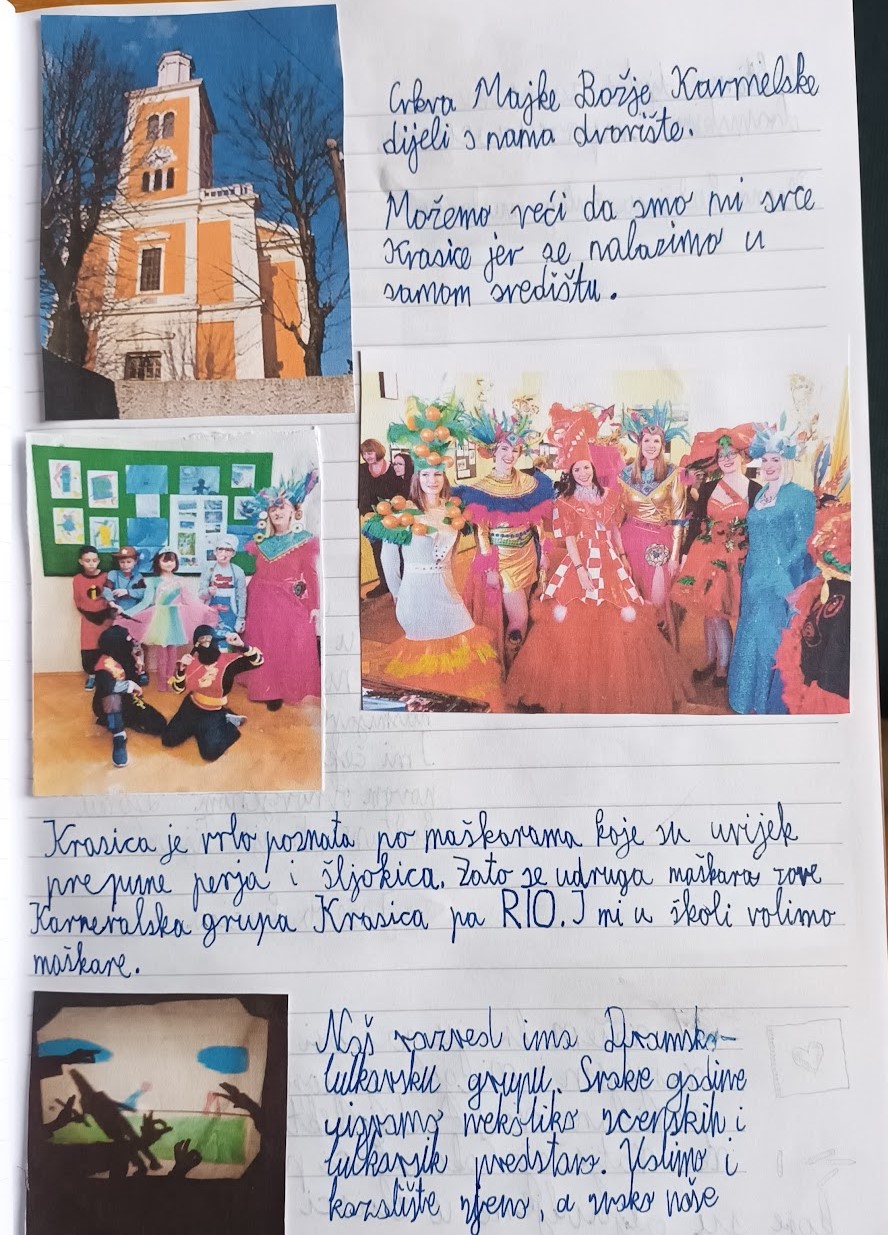 Crkva Majke Božje Karmelske
dijeli s nama dvorište.
Možemo reći da smo mi srce
Krasice jer se nalazimo u
samom središtu.
Krasica je vrlo poznata po maškarama koje su uvijek
prepune perja i šljokica. Zato se udruga maškara zove
Karnevalska grupa Krasica pa RIO. I mi u školi volimo
maškare.
Naš razred ima Dramsko-
lutkarsku grupu. Svake godine
igramo nekoliko scenskih i
lutkarsik predstava. Volimo i
kazalište sjena, a svako naše